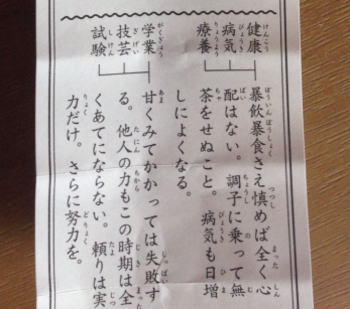 健康
病気
療養
暴飲暴食さえ慎めば全く心
配はない。調子に乗って無
茶をせぬこと。病気も日増
しによくなる。
学業
技芸
試験
甘くみてかかっては失敗す
る。他人の力もこの時期は全
くあてにならない。頼りは実
力だけ。さらに努力を。